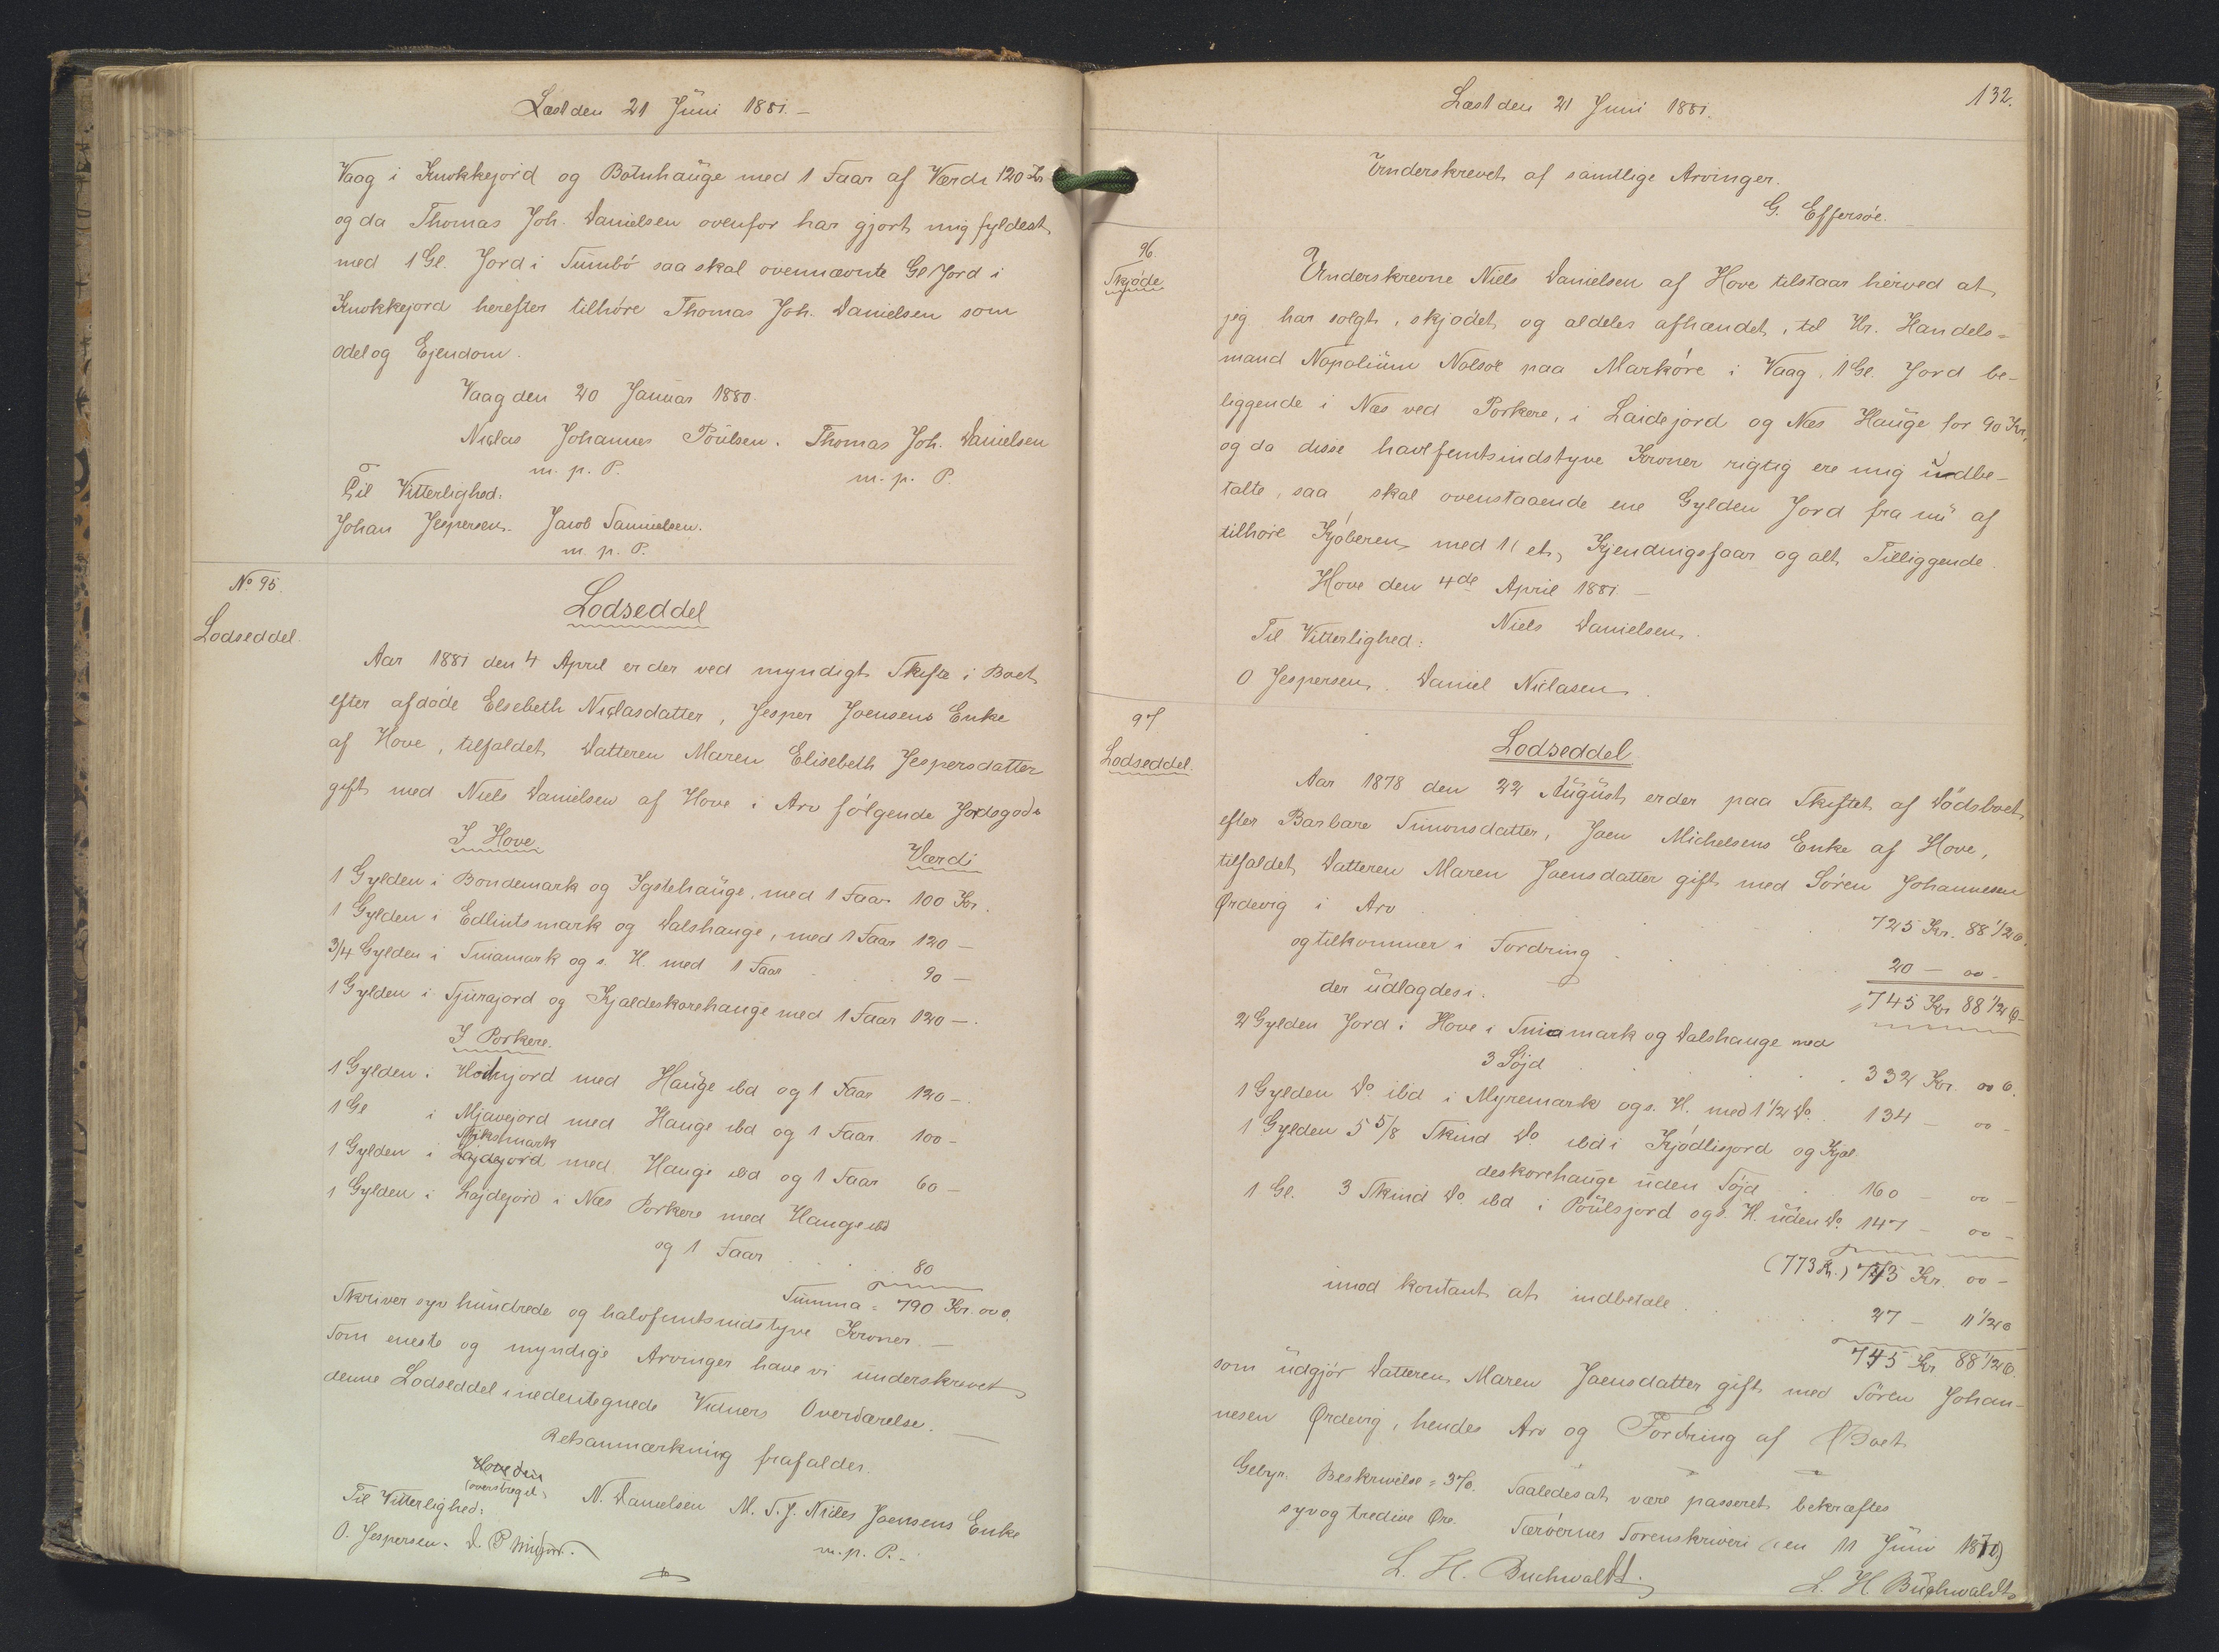 Læst den 21 Juni 1881.-
Vaag i Knokkejord og Botnhauge med 1 Faar af Værdi 120 Kr
og da Thomas Joh. Danielsen ovenfor har gjort mig fyldest
med 1 Gl. Jord i Sumbø saa skal ovennævnte Gl Jord i
Knokkejord herefter tilhøre Thomas Joh. Danielsen som
Odel og Ejendom.
Vaag den 20 Januar 1880.
Niclas Johannes Poulsen. Thomas Joh. Danielsen
m. p. P. m. p. P.
Til Vitterlighed:
Johan Jespersen. Jacob Samuelsen.
m. p. P.
No. 95.
Lodseddel.
Lodseddel
Aar 1881 den 4 April er der ved myndigt Skifte i Boet
efter afdøde Elsebeth Niclasdatter, Jesper Joensens Enke
af Hove, tilfaldet Datteren Maren Elisebeth Jespersdatter
gift med Niels Danielsen af Hove i Arv følgende Jordegods
I Hove
Værdi
1 Gylden i Bondemark og Ygstehauge, med 1 Faar 100 Kr.
1 Gylden i Edlintsmark og Dalshauge, med 1 Faar 120 -
3/4 Gylden i Smamark og s. H. med 1 Faar 90 -
1 Gylden i Tjurajord og Kjaldeskorehauge med 1 Faar 120 -.
I Porkere.
1 Gylden i jord med Hauge ibd og 1 Faar 120 -.
1 Gl i Mjavejord med Hauge ibd og 1 Faar 100 -
mark
1 Gylden i Lajdejord med Hauge ibd og 1 Faar 60 -
1 Gylden i Lajdejord i Næs Porkere med Hauge ibd
og 1 Faar . . . . 80
Summa = 790 Kr. oo o.
Skriver syv hundrede og halvfemtsindstyve Kroner. -
Som eneste og myndige Arvinger have vi underskrevet
denne Lodseddel i nedentegnede Vidners Overværelse. -
Retsanmærkning frafalder.
Hove den
(overstreget)
Til Vitterlighed: N. Danielsen M. S. J. Niclas Joensens Enke
O. Jespersen. D. P. m. p. P.
Læst den 21 Juni 1881.
132.
Underskrevet af samtlige Arvinger.
G. Effersøe.
96.
Skjøde
Underskrevne Niels Danielsen af Hove tilstaar herved at
jeg har solgt, skjødet og aldeles afhændet, til Hr. Handels=
mand Napolium Nolsøe paa Markøre i Vaag, 1 Gl. Jord be-
liggende i Næs ved Porkere, i Laidejord og Næs Hauge for 90 Kr,
og da disse halvfemtsindstyve Kroner rigtig ere mig indbe-
talte, saa skal ovenstaaende ene Gylden Jord fra nu af
tilhøre Kjøberen med 1( et) Kjendingsfaar og alt Tilliggende.
Hove den 4de April 1881. -
Niels Danielsen.
Til Vitterlighed:
O Jespersen. Daniel Niclasen.
97
Lodseddel.
Lodseddel
Aar 1878 den 22 August er der paa Skiftet af Dødsboet
efter Barbare Simonsdatter, Joen Michelsens Enke af Hove,
tilfaldet Datteren Maren Joensdatter gift med Søren Johannesen
Ørdevig i Arv . . . 725 Kr. 88 1/2 o.
og tilkommer i Fordring . . . 20 - oo -
der udlagdes i. 745 Kr 88 1/2 o -
2 Gylden Jord i Hove i Smamark og Dalshauge med
3 Søjd . . . 332 Kr. oo o.
1 Gylden Do ibd i Myremark og s. H. med 1 1/2 Do. 134 - oo -
1 Gylden 5 5/8 Skind Do ibd i Kjødlisjord og Kjal-
deskorehauge uden Søjd . 160 - oo -
1 Gl. 3 Skind Do ibd i Poulsjord og s. H. uden Do 147 - oo -
(773 Kr.) 773 Kr. oo -
imod kontant at indbetale . . . 27 - 11 1/2 o
745 Kr 88 1/2 o.
som udgjør Datteren Maren Joensdatter gift med Søren Johan-
nesen Ørdevig, hendes Arv og Fordring af Boet
Gebyr. Beskrivelse = 37 o. Saaledes at være passeret bekræftes
syv og tredive Øre. Færøernes Sorenskriveri den 11 Juni
L. H. Buchwaldt. L. H. Buchwaldt